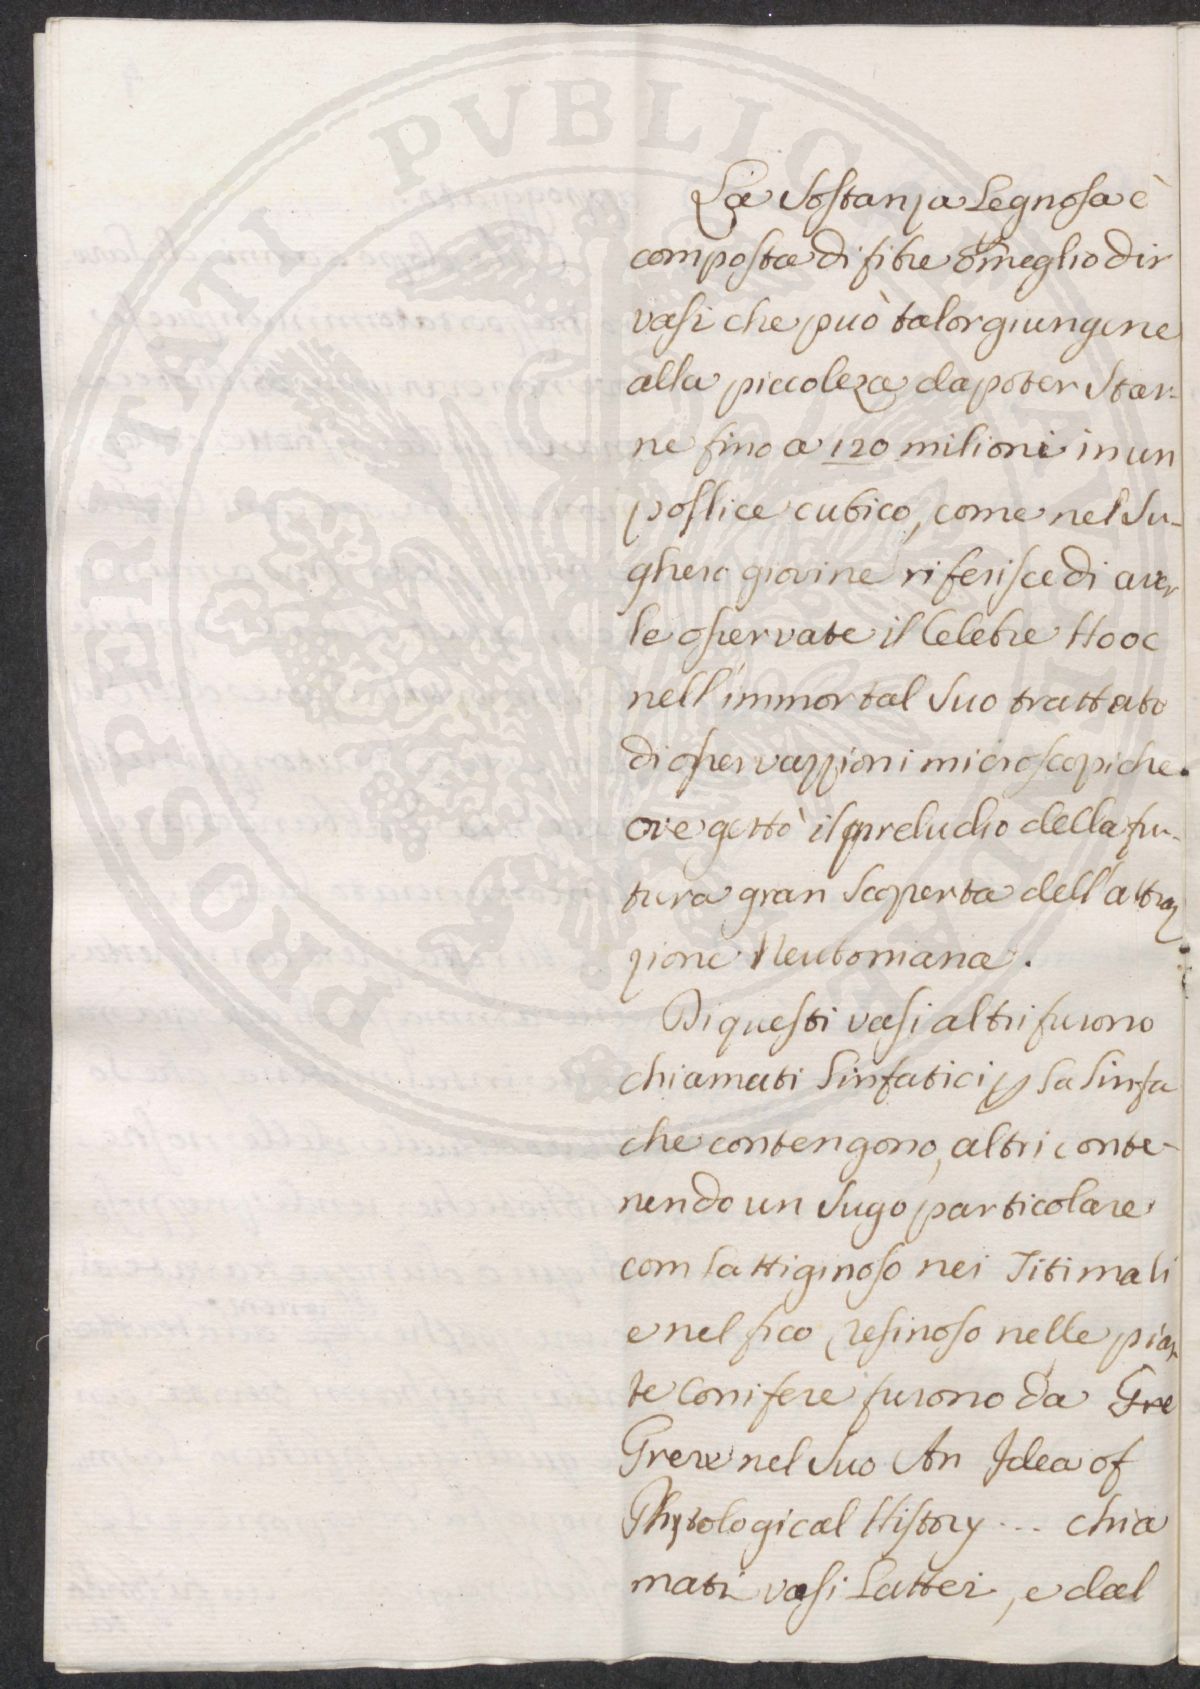 PROSPERITATI PVBLICAE AVGENDAE
La Sostanza Legnosa è
composta di fibre o meglio dir
vasi che può talor giungere
alla piccoleza da poter star-
ne fino a 120 milioni in un
pollice cubico, come nel Su-
ghero giovine riferisce di aver
le osservate il Celebre Hooc
nell'immortal suo trattato
di osservazzioni microscopiche
ove gettò il preludio della fu-
tura gran scoperta dell'attraz
zione Neutoniana.
Di questi vasi altri furono
chiamati Linfatici p la Linfa
che contengono, altri conte-
nendo un sugo particolare
com lattiginoso nei Titimali
e nel fico, resinoso nelle pian-
te Conifere furono da Gre
Grew nel suo An Idea of
Phytological History ... chia
mati vasi Lattei, e dal